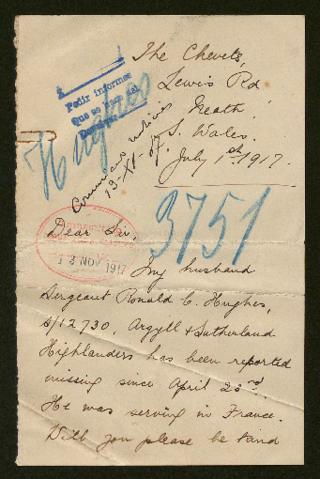 The Chevets,
Lewis Rd,
Neath,
S. Wales.
July 1st 1917.
Pedir informes
Hughes
13-XI-17.
3751
13 NOV 1917
Dear Sir,
My husband
Sergeant Ronald C. Hughes,
S/12730, Argyll & Sutherland
Highlanders has been reported
missing since April 23rd.
He was serving in France.
Will you please be kind